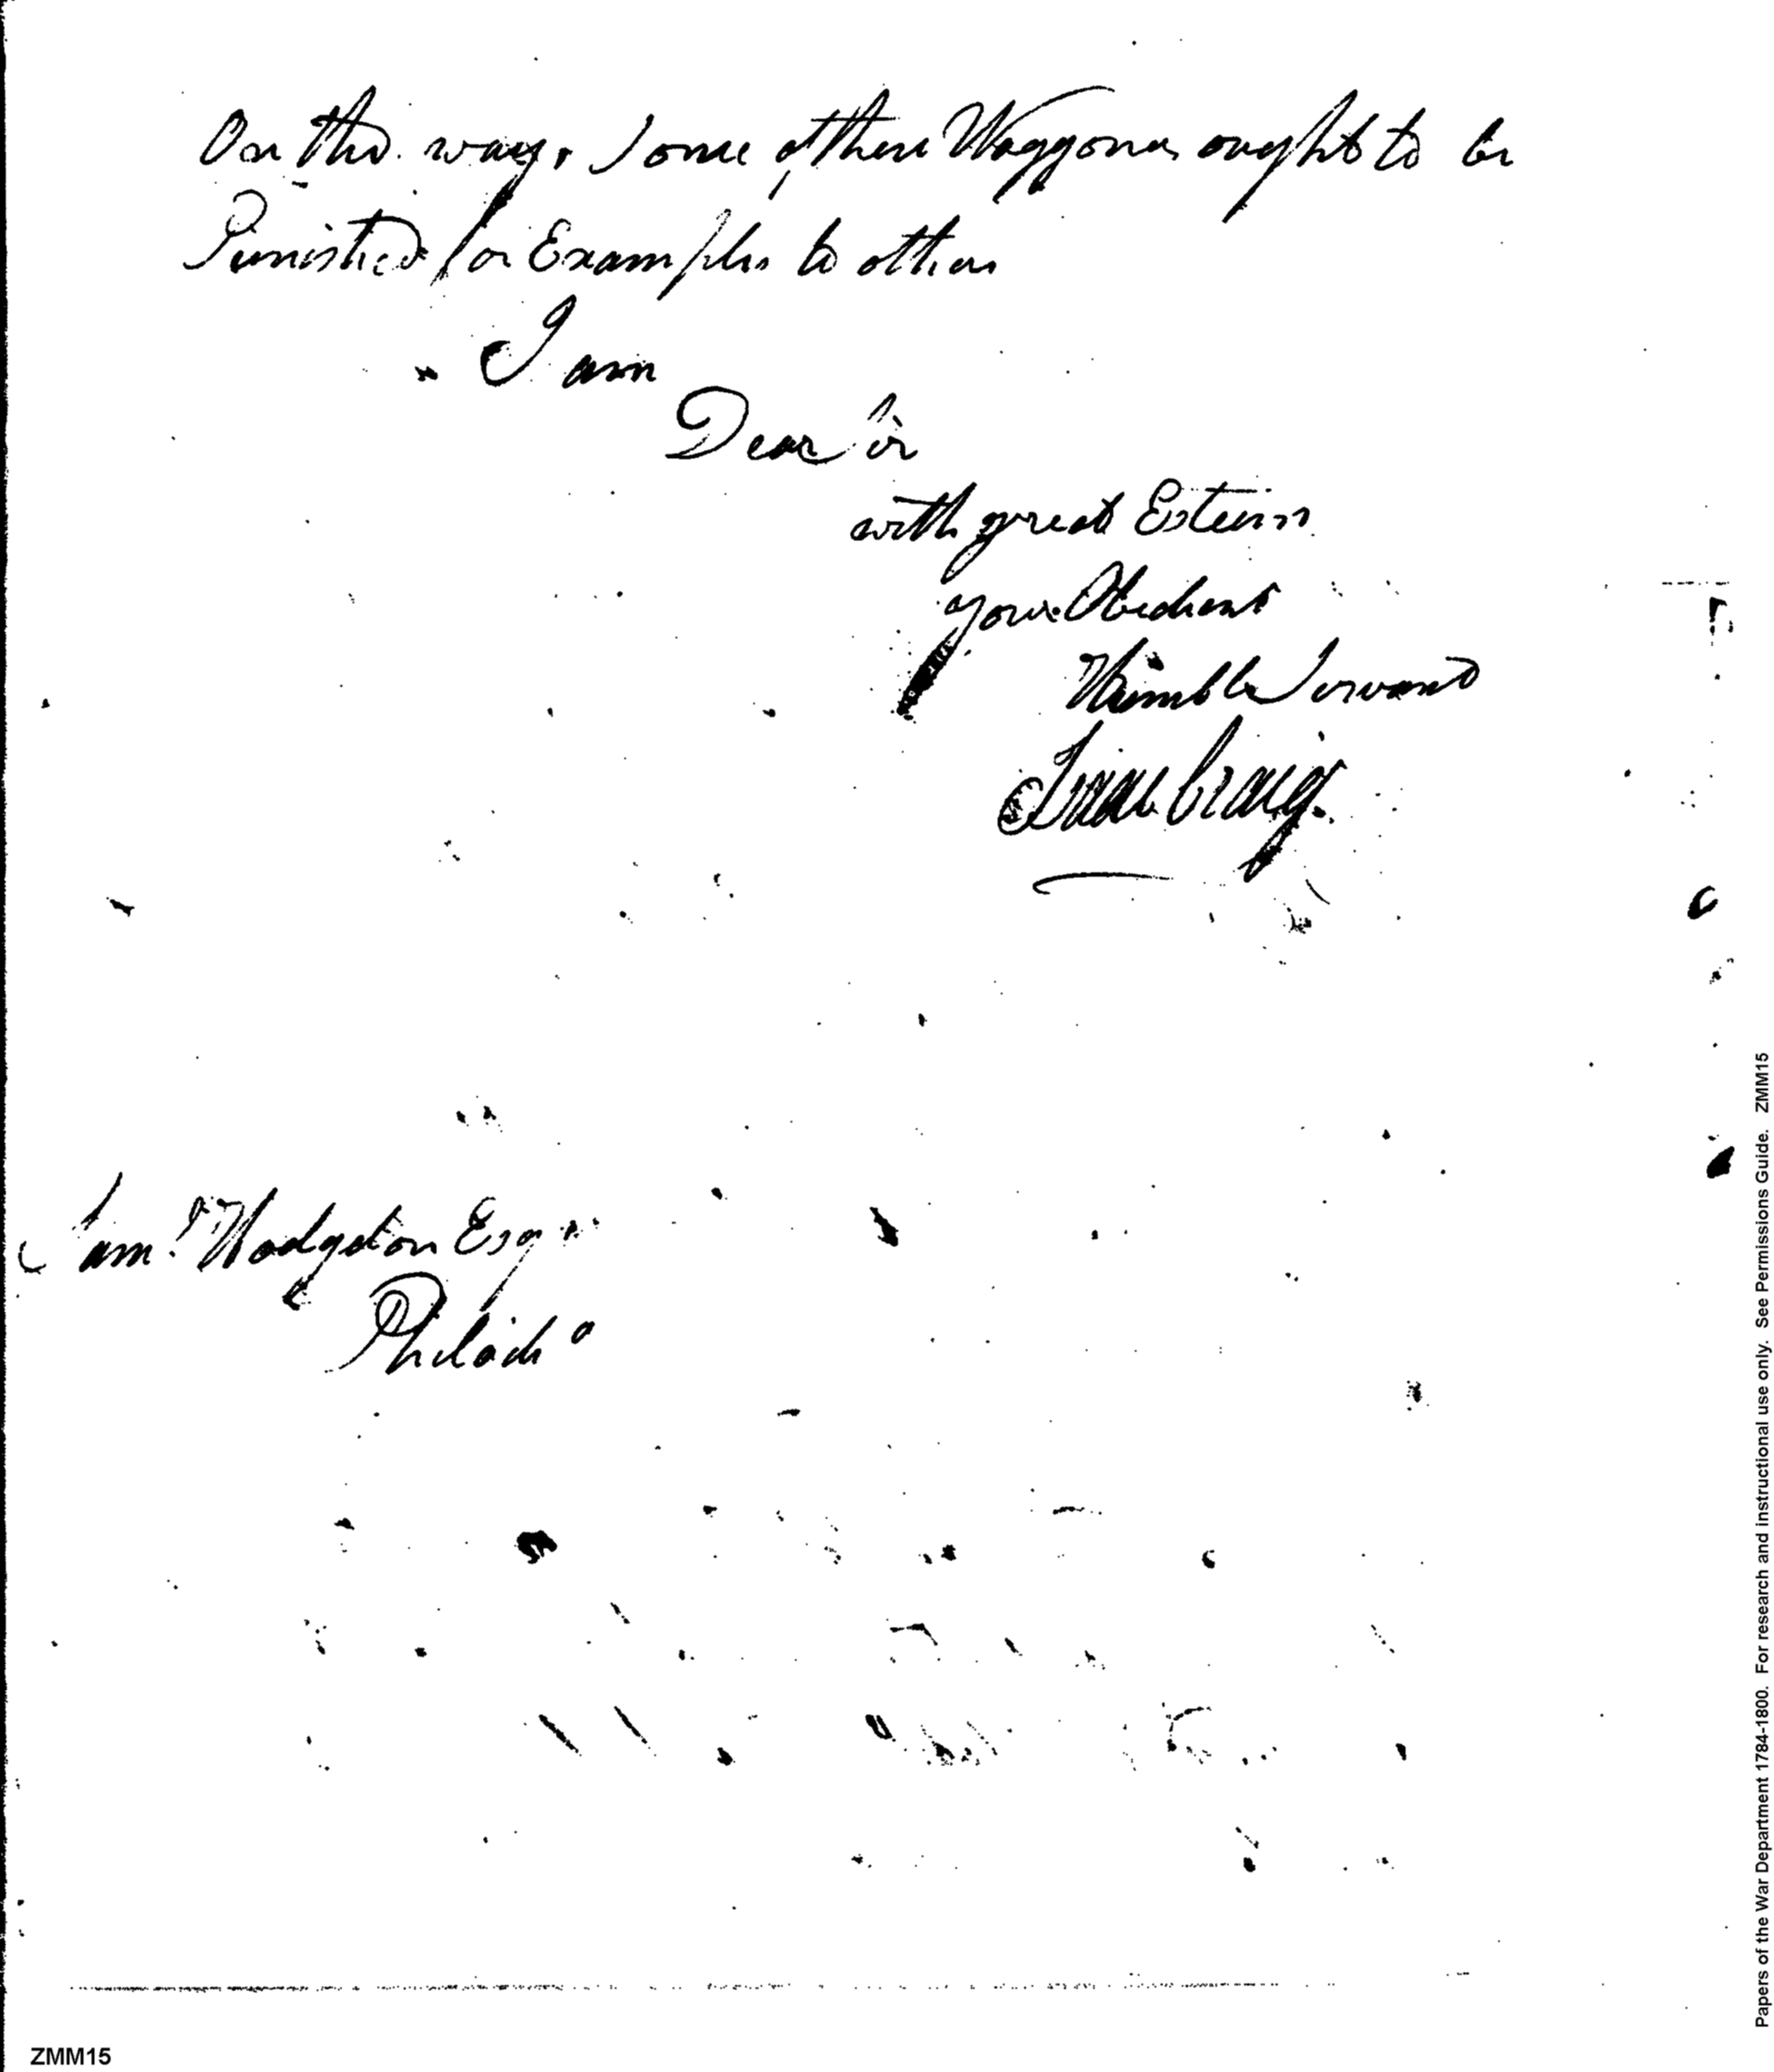 On the way, Some of these Waggoners ought to be
Punished for Examples to others
I am
Dear Sir
with great Esteem
your Obedient
Humble Servant
Isaac Craig
Saml Hodgdon Esqr
Philada
Papers of the War Department 1784-1800. For research and instructional use only. See Permissions Guide. ZMM15
ZMM15